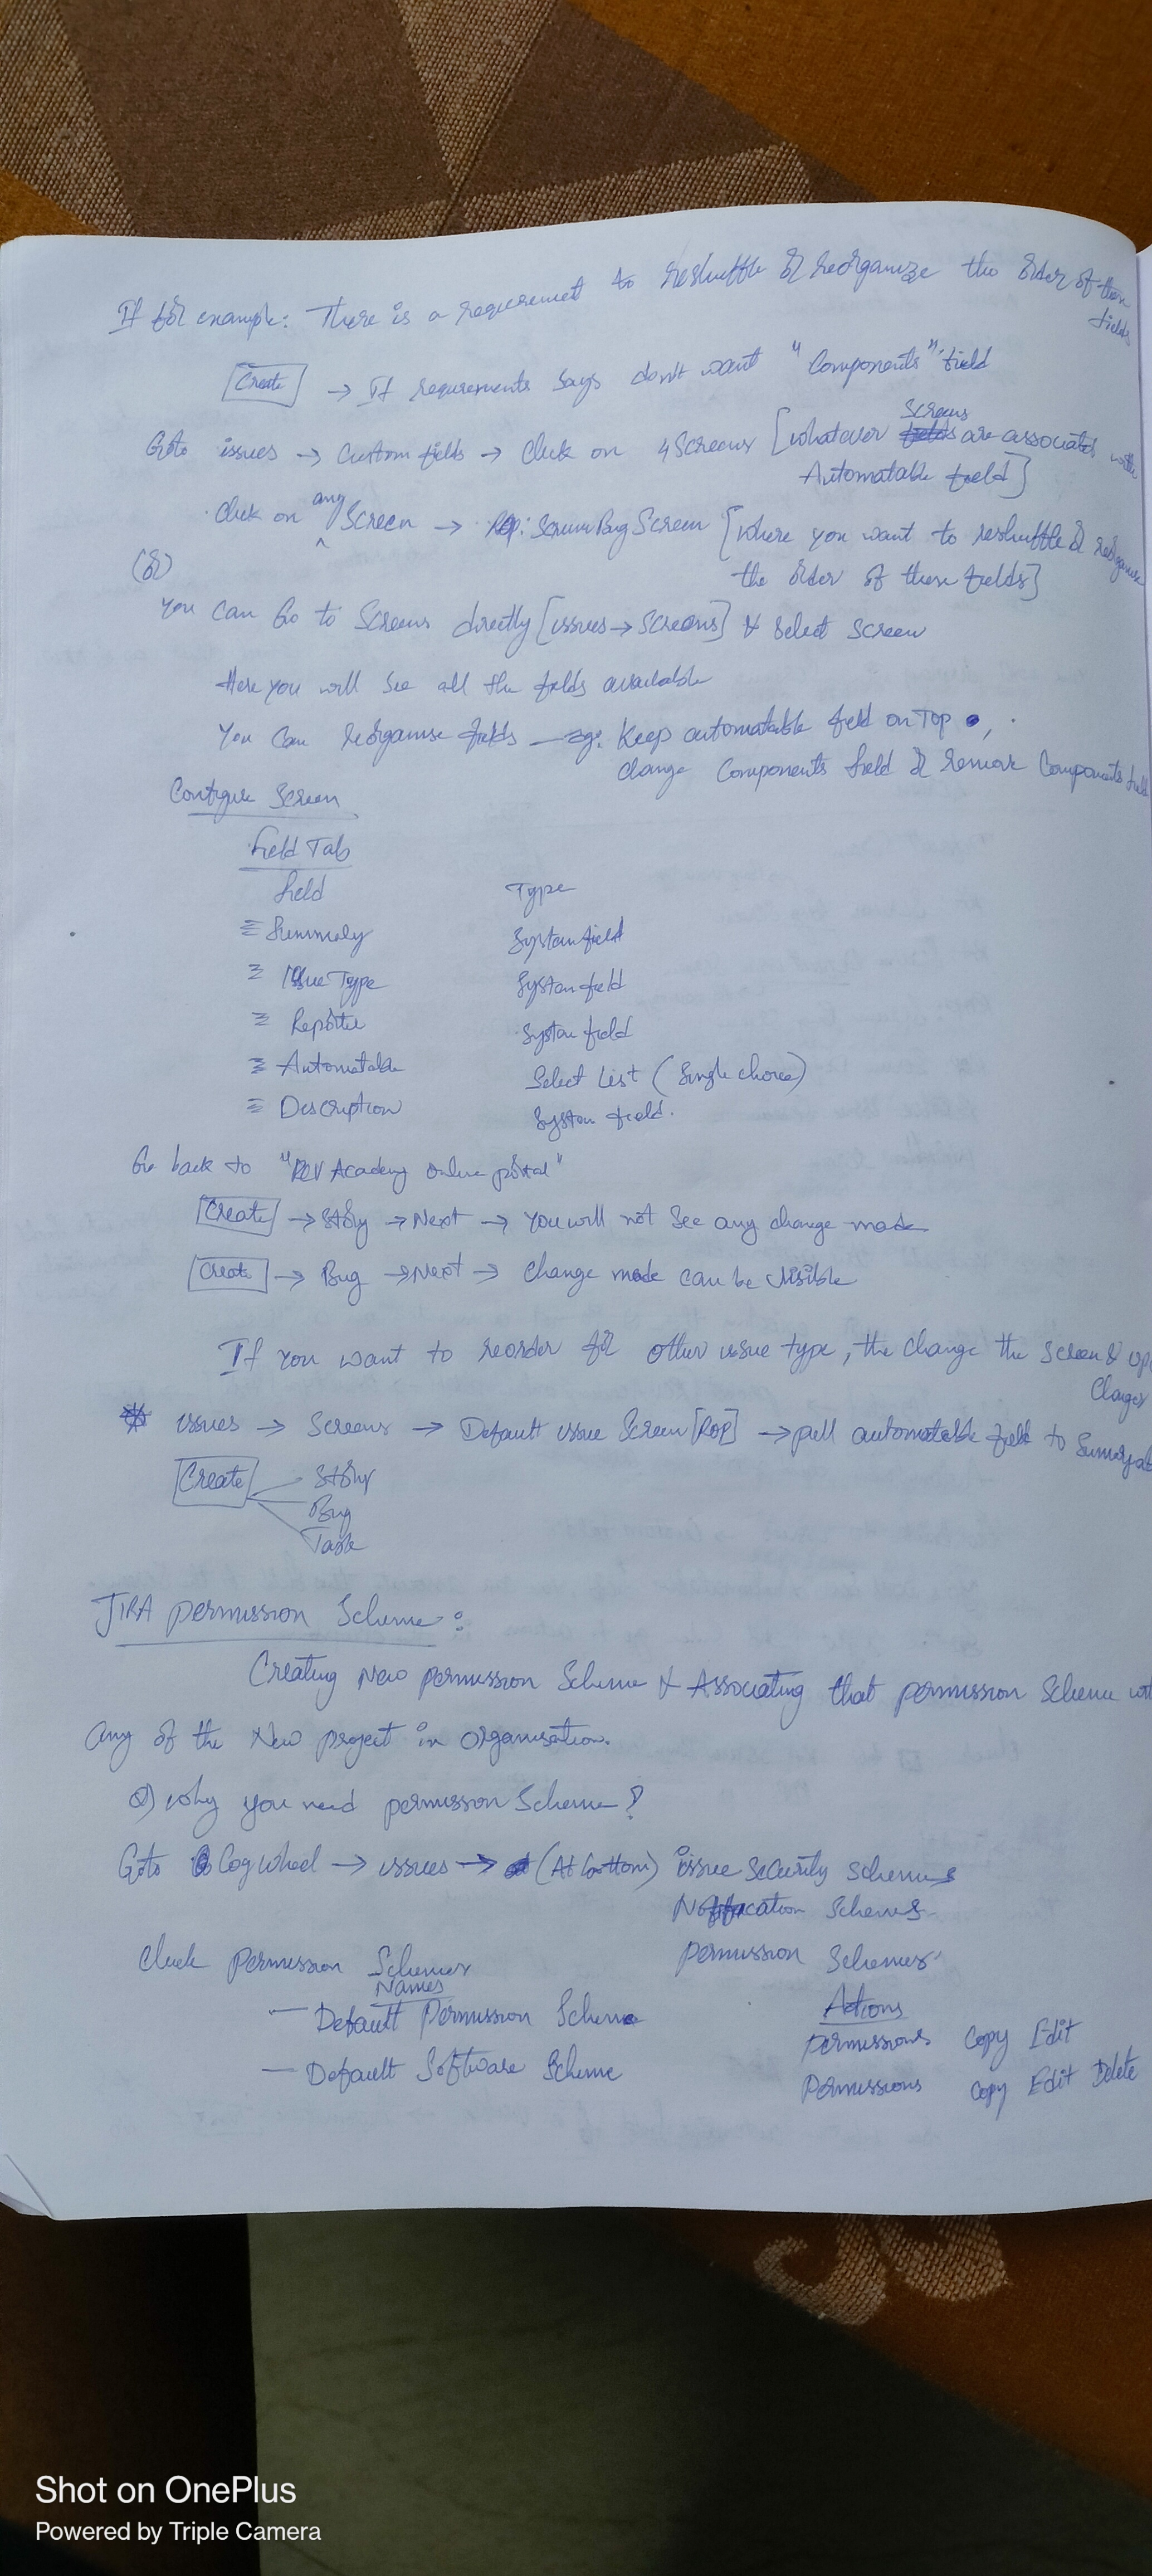 If for example: There is a requirement to reshuffle or reorganize the order of then fields
Create → If requirements says don't want "Components" field
Goto issues → Custom fields → Click on 4 Screens [whatever screens are associated with
Automatable field]
Click on any Screen → ROP: Scrum Bug Screen [Where you want to reshuffle or reorganise
the order of these fields]
(or)
You can Go to Screens directly [issues → Screens] & select Screen
Here you will see all the fields available
You can reorganise fields — eg: Keep automatable field on Top,
change Components field or remove Components field
Configure Screen
Field Tab
field Type
Summary System field
Issue Type System field
Reporter System field
Automatable Select List (Single choice)
Description System field.
Go back to " Academy online portal"
Create → Story → Next → You will not see any change made
Create → Bug → Next → Change made can be visible
If you want to reorder for other issue type, the change the screen &
Changes
issues → Screens → Default issue Screen [ROP] → pull automatable field to
Create Story
Bug
Task
JIRA permission Scheme:
Creating New permission Scheme & Associating that permission Scheme with
any of the New project in organisation.
Q) why you need permission Scheme?
Goto Cog wheel → issues → (At bottom) issue Security schemes
Notification Schemes
permission Schemes
Click Permission Schemes
Names Actions
— Default Permission Scheme Permissions Copy Edit
— Default Software Scheme Permissions Copy Edit Delete
Shot on OnePlus
Powered by Triple Camera